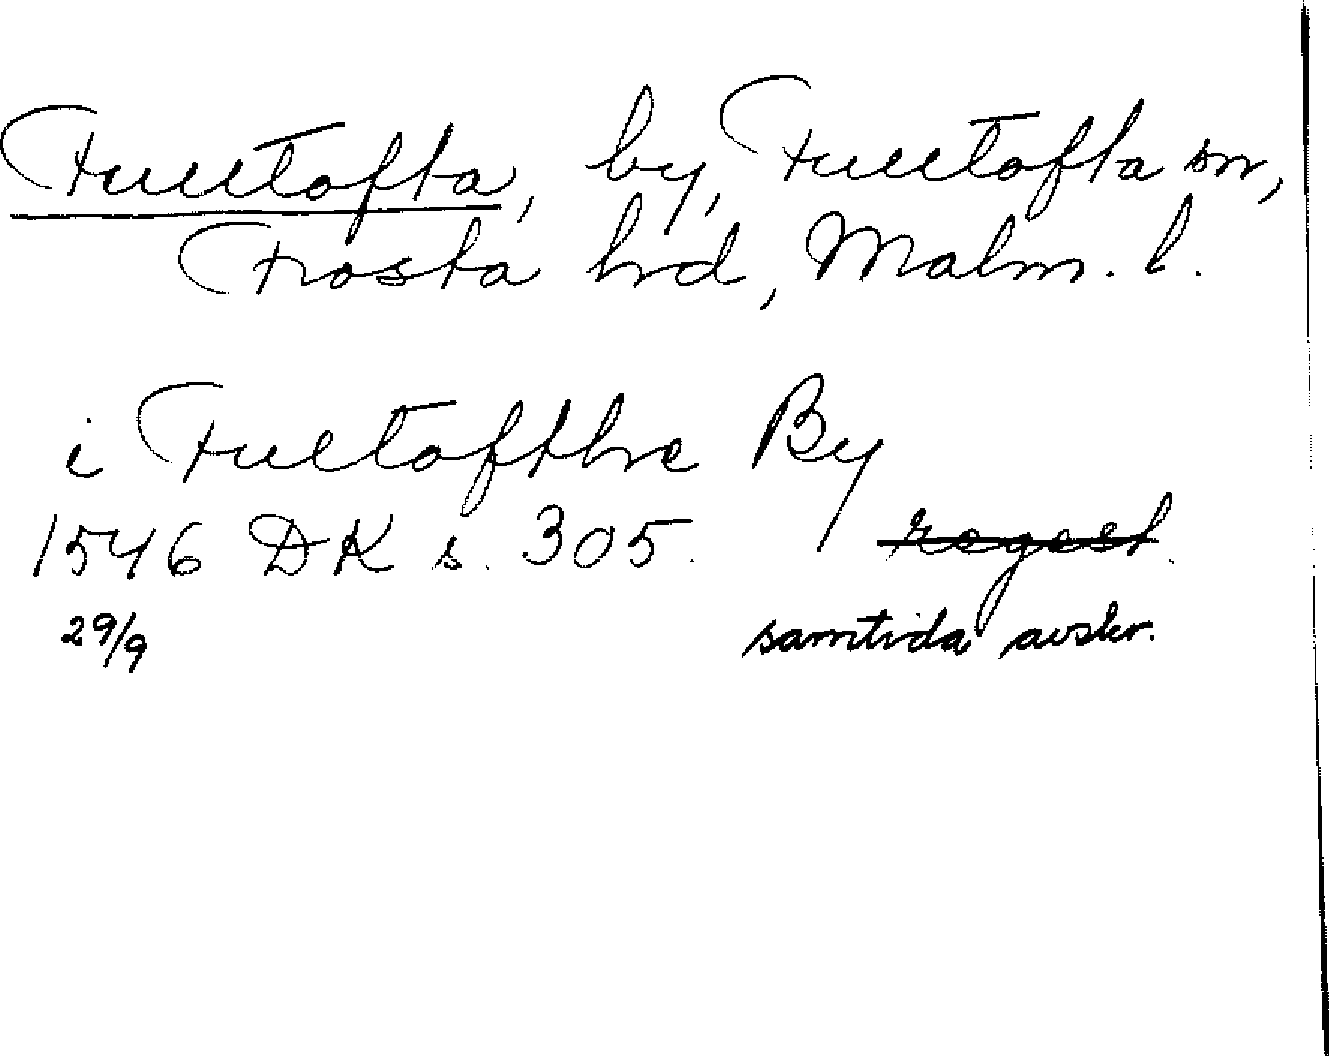 Fulltofta, by, Fulltofta sn,
Frosta hrd, Malm. l.
i Fultofthe By
1546 DK s. 305. regest.
29/9 samtida avskr.